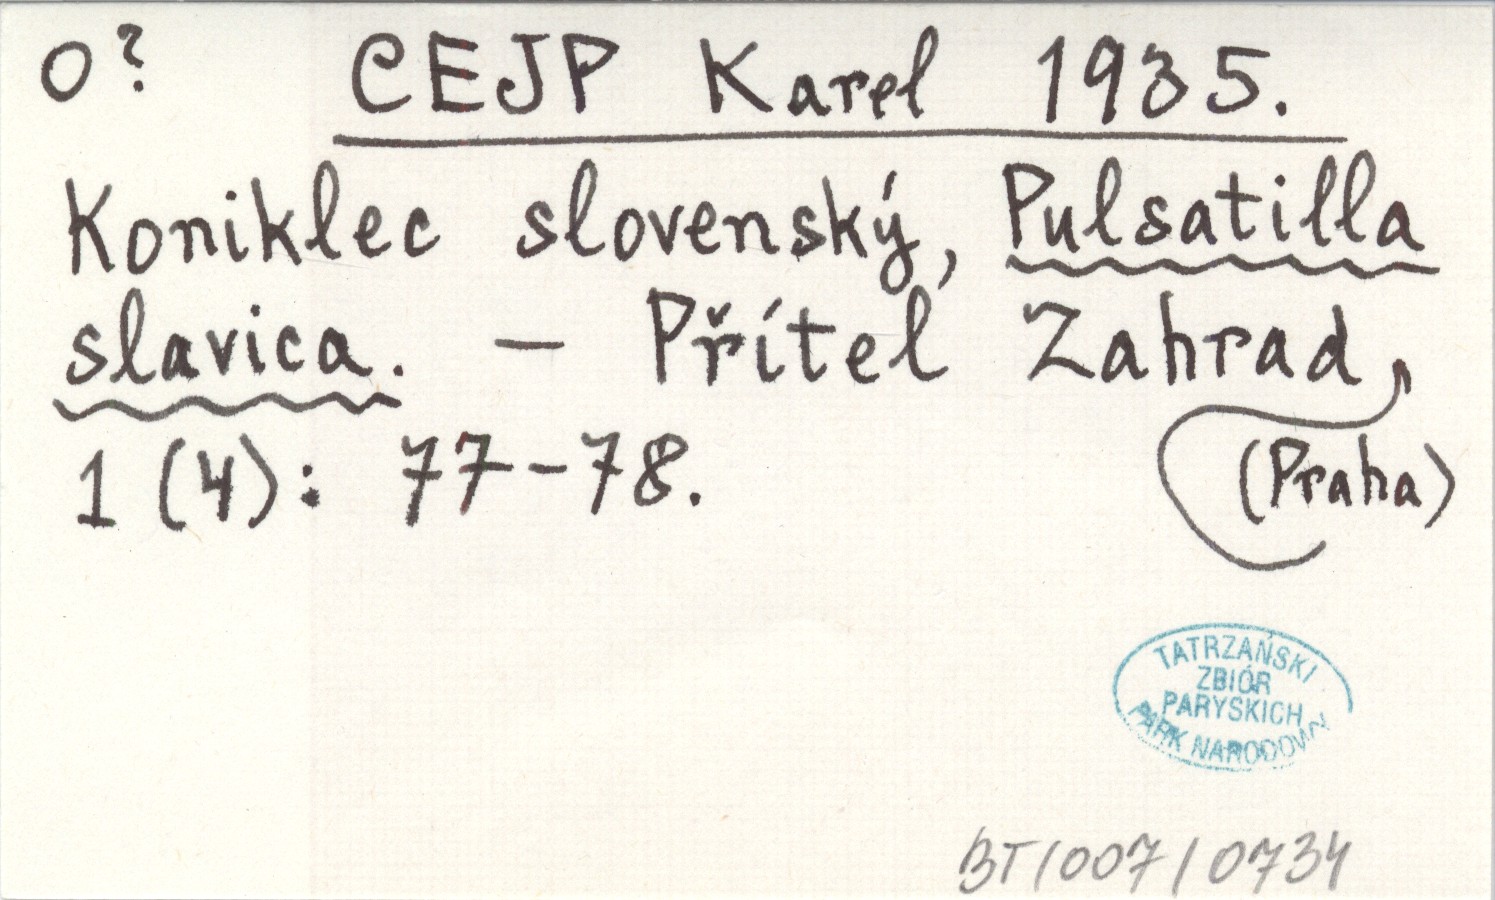 O? CEJP Karel 1935.
Koniklec slovenský, Pulsatilla
slavica. – Přítel Zahrad,
(Praha)
1 (4): 77–78.
TATRZAŃSKI
ZBIÓR
PARYSKICH
PARK NARODOWY
BT/007/0734